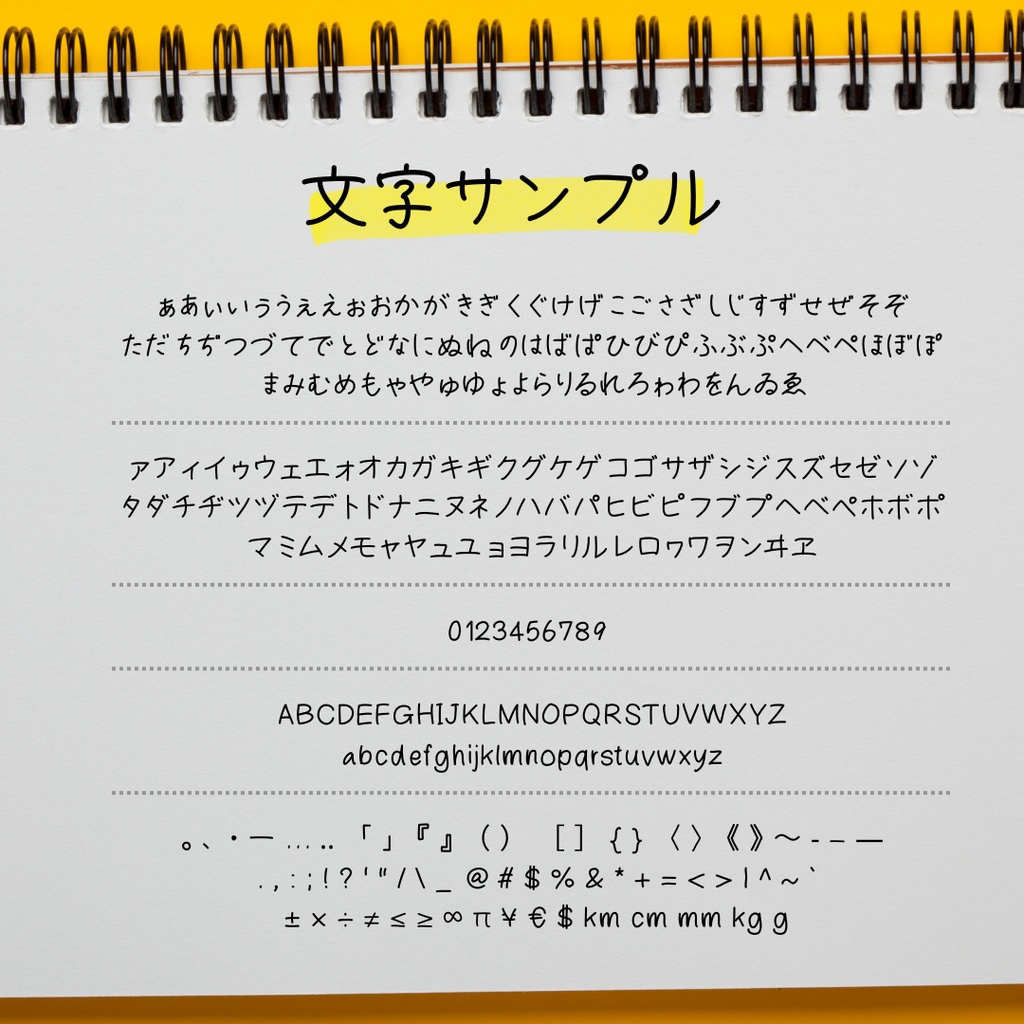 文字サンプル
ぁあぃいぅうぇえぉおかがきぎくぐけげこごさざしじすずせぜそぞ
ただちぢつづてでとどなにぬねのはばぱひびぴふぶぷへべぺほぼぽ
まみむめもゃやゅゆょよらりるれろゎわをんゐゑ
ァアィイゥウェエォオカガキギクグケゲコゴサザシジスズセゼソゾ
タダチヂツヅテデトドナニヌネノハバパヒビピフブプヘベペホボポ
マミムメモャヤュユョヨラリルレロヮワヲンヰヱ
0123456789
ABCDEFGHIJKLMNOPQRSTUVWXYZ
abcdefghijklmnopqrstuvwxyz
。、・ー…‥「」『』()[]{}〈〉《》〜-–—
.,:;!?'"/\_@#$%&*+=<>|^~`
±×÷≠≤≥∞π¥€$ km cm mm kg g